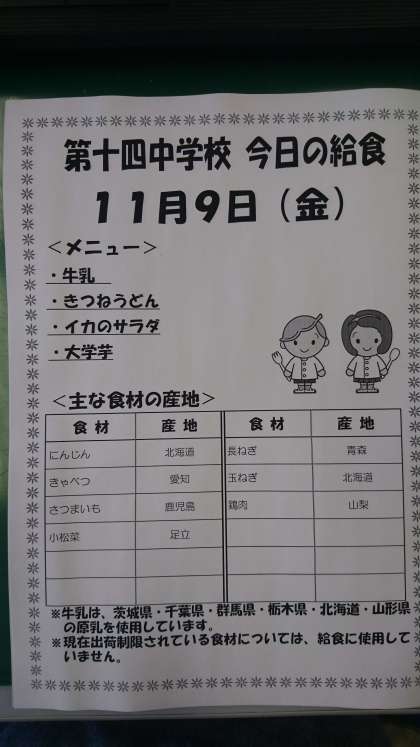 第十四中学校 今日の給食
11月9日（金）
＜メニュー＞
・牛乳
・きつねうどん
・イカのサラダ
・大学芋
＜主な食材の産地＞
食材 産地 食材 産地
にんじん 北海道 長ねぎ 青森
きゃべつ 愛知 玉ねぎ 北海道
さつまいも 鹿児島 鶏肉 山梨
小松菜 足立
※牛乳は、茨城県・千葉県・群馬県・栃木県・北海道・山形県
の原乳を使用しています。
※現在出荷制限されている食材については、給食に使用して
いません。